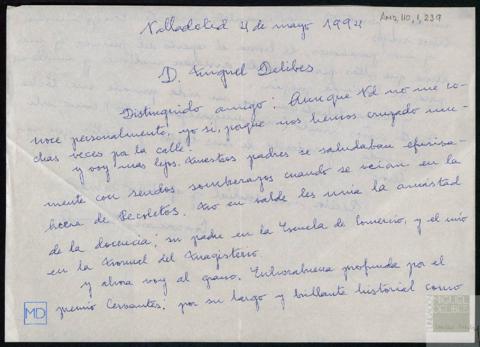 AMD, 110, 1, 239
Valladolid 4 de mayo 1994
D. Miguel Delibes
Distinguido amigo: Aunque Vd no me co-
noce personalmente, yo sí, porque nos hemos cruzado mu-
chas veces por la calle.
y voy más lejos. Nuestros padres se saludaban efusiva-
mente con sendos sombrerazos cuando se veían en la
Acera de Recoletos. No en valde les unía la amistad
de la docencia; su padre en la Escuela de Comercio, y el mío
en la Normal del Magisterio.
y ahora voy al grano. Enhorabuena profunda por el
premio Cervantes; por su largo y brillante historial como
MD